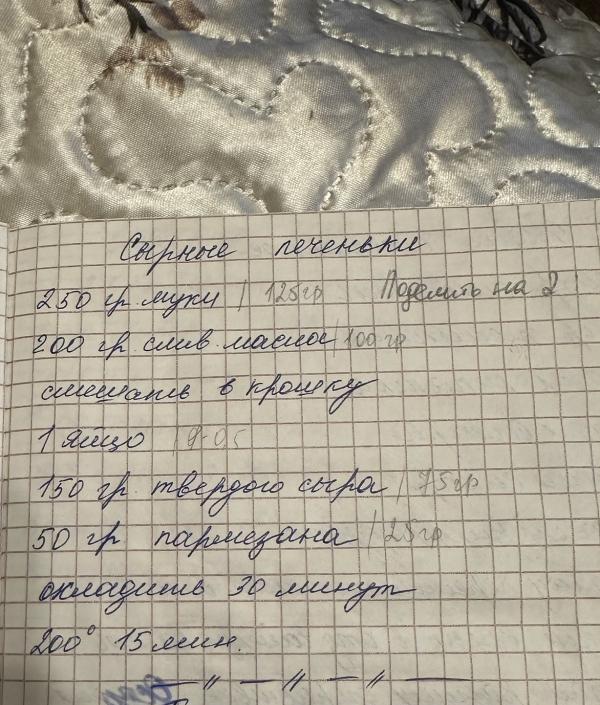 Сырные печеньки
250 гр. муки | 125гр Поделить на 2
200 гр слив. масла | 100 гр
смешать в крошку
1 яйцо | 0,5
150 гр. твердого сыра | 75гр
50 гр пармезана | 25гр
охладить 30 минут
200° 15 мин.